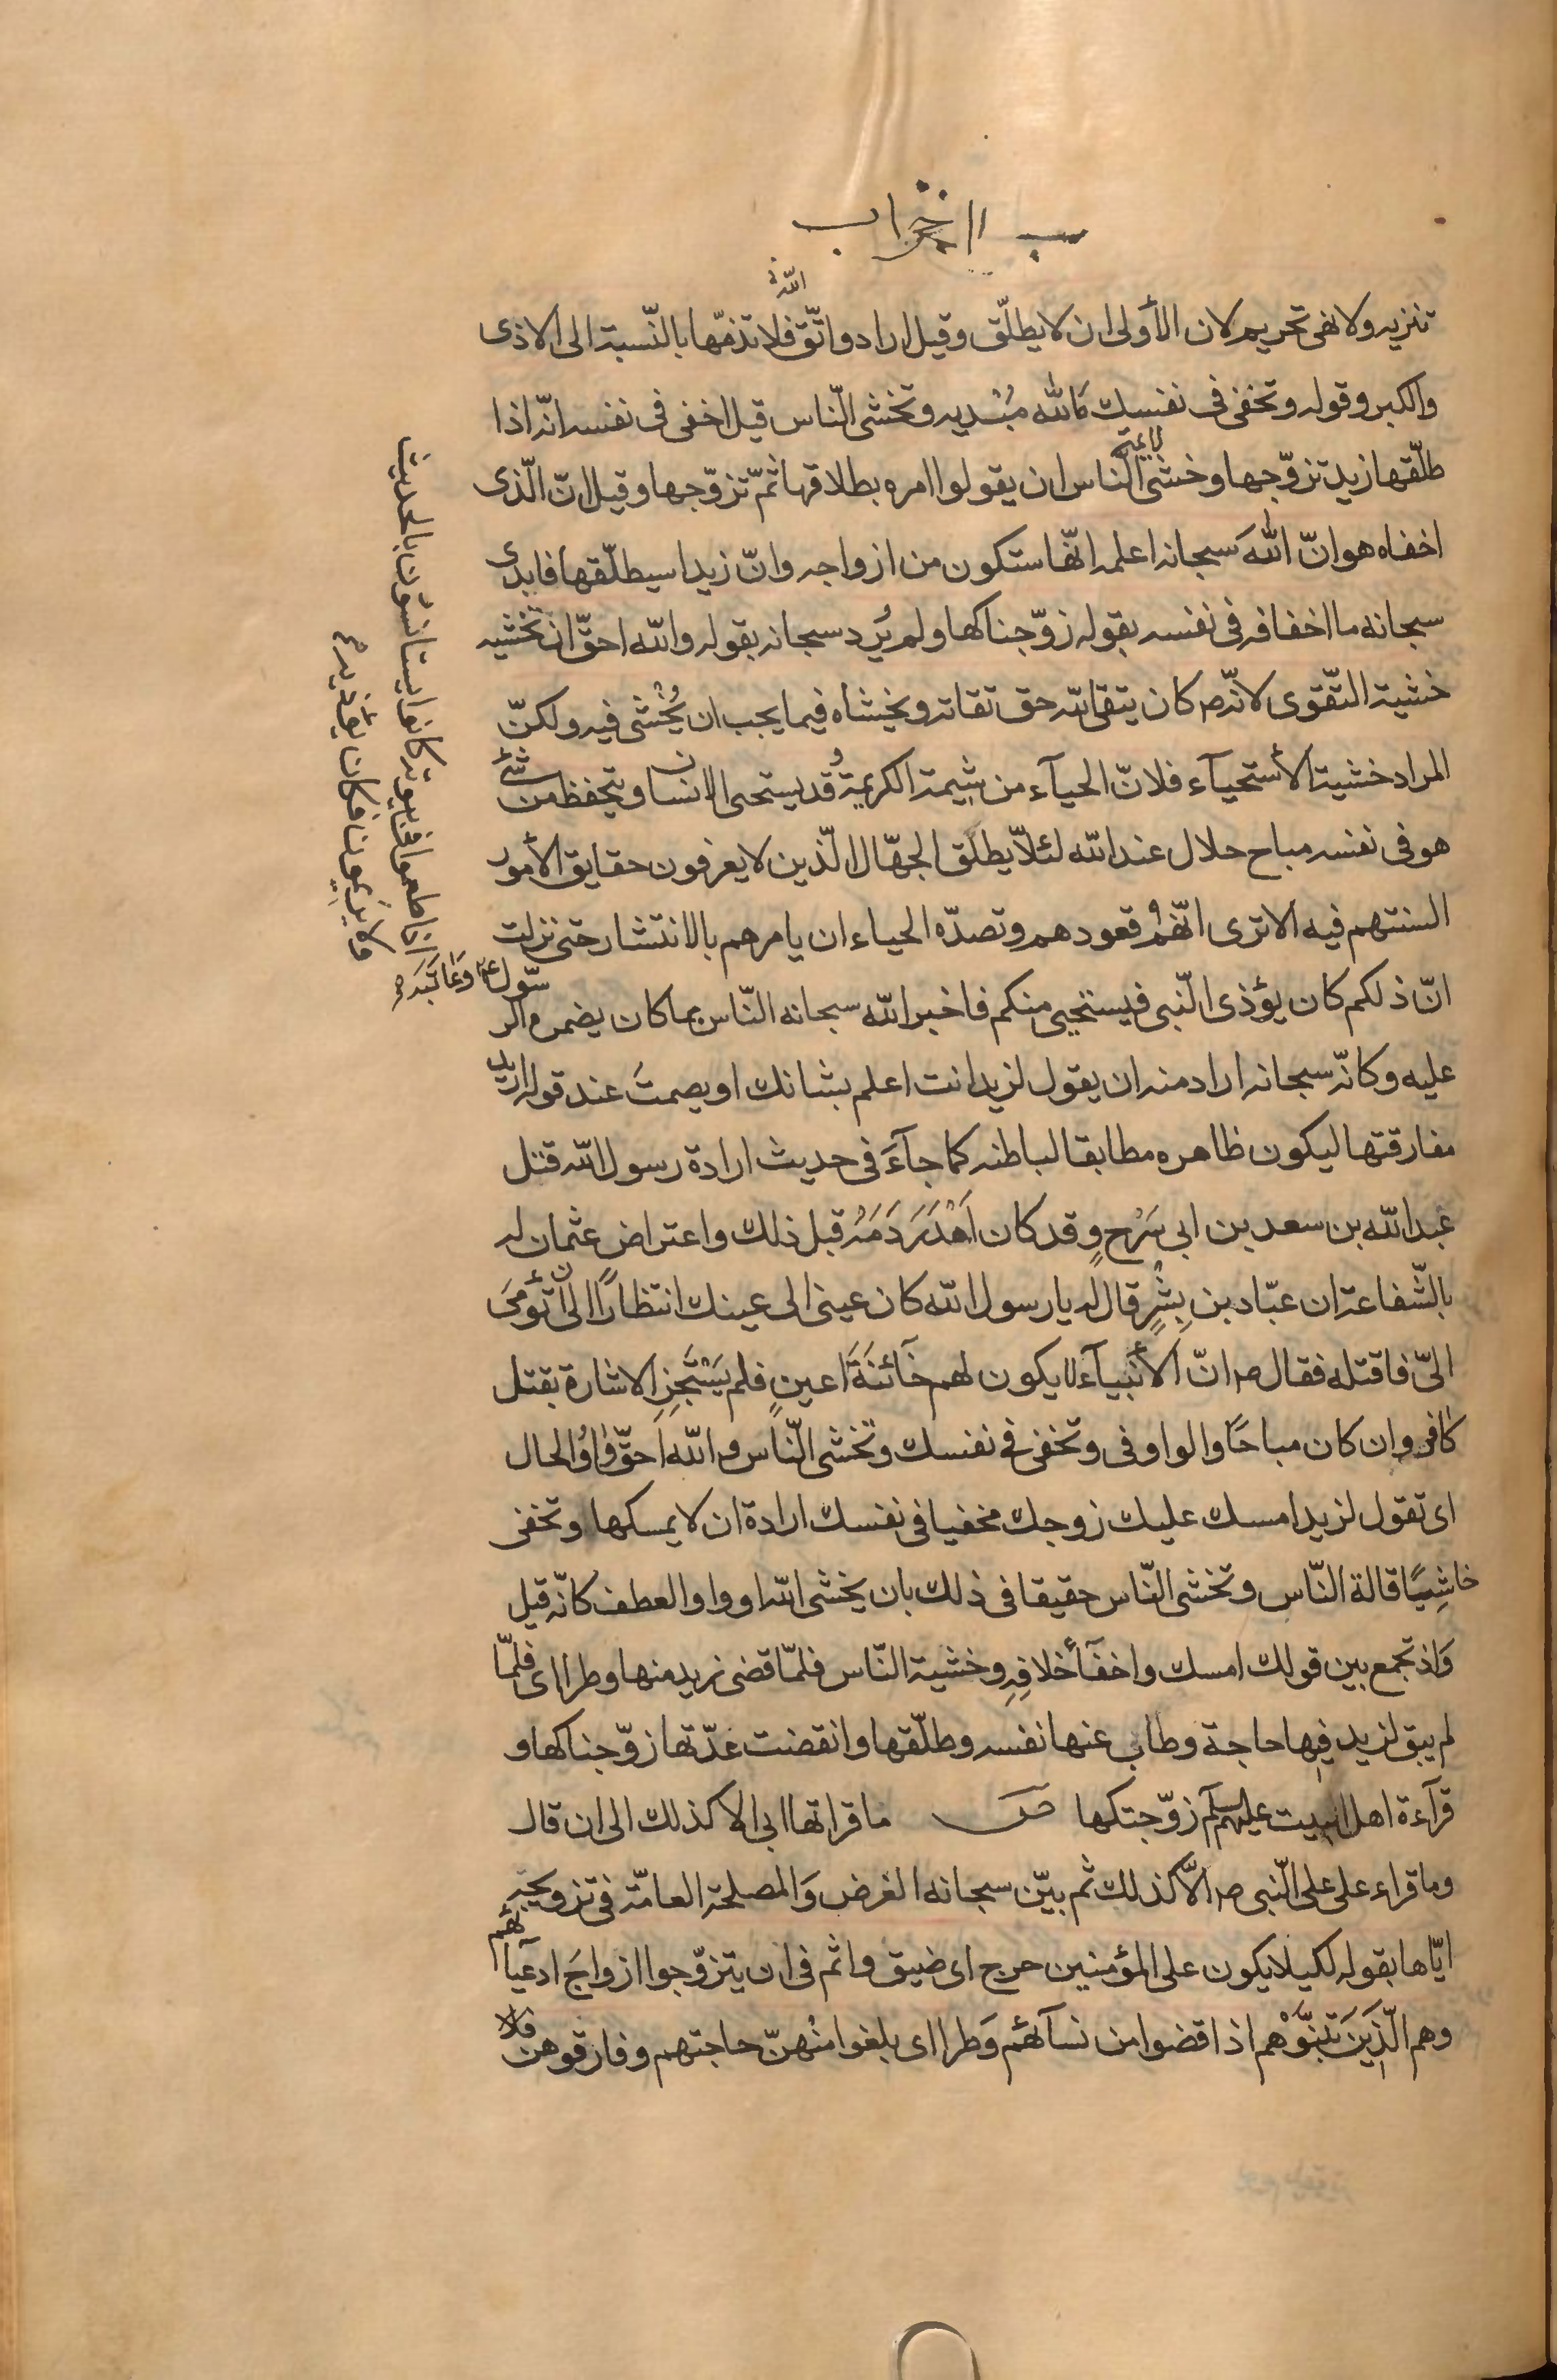 ب الاحزاب
تنزيه ولا نهى تحريم لان الأولى ان لا يطلّق وقيل اراد واتّق الله فلا تذمّها بالنّسبة الى الاذى
والكبر وقوله وتخفى فى نفسك ماالله مُبْديه وتخشى النّاس قيل اخفى فى نفسه انّه اذا
طلّقها زيد تزوّجها وخشى لائمة النّاس ان يقولوا امره بطلاقها ثمّ تزوّجها وقيل انّ الّذى
اخفاه هو انّ اللهَ سبحانه اعلمه انّها ستكون من ازواجه وانّ زيدا سيطلّقها فابدى
سبحانه ما اخفاه فى نفسه بقوله زوّجناكها ولم يُرِد سبحانه بقوله والله احقّ ان تخشيه
خشية التّقوى لانّه ص كان يتقى الله حق تقاته ويخشاه فيما يجب ان يُخْشى فيه ولكنّ
المراد خشية الأستحيآء فلانّ الحيآء من شيمة الكريمة وقد يستحى الانسان ويتحفظ من شئ
هو فى نفسه مباح حلال عند الله لئلّا يطلَق الجهّال الّذين لا يعرفون حقايق الأمور
السنتهم فيه الا ترى انّهم قعودهم وتصدّه الحياء ان يامرهم بالانتشار حتى نزلت
انّ ذلكم كان يؤذى النّبى فيستحيى منكم فاخبر الله سبحانه النّاس بما كان يضمره الرسّول ع وعاتبه
عليه وكانّه سبحانه اراد منه ان يقول لزيد انت اعلم بشانك او يصمتَ عند قوله اريد
مفارقتها ليكون ظاهره مطابقا لباطنه كما جآءَ فى حديث ارادة رسول الله قتل
عبدالله بن سعد بن ابى سَرْحٍ وقد كان اَهْدَرَ دَمَهُ قبل ذلك واعتراض عثمان له
بالشّفاعة ان عبّاد بن بِشْرٍ قال له يا رسول الله كان عينى الى عينك انتظارًا الى ان تؤمَى
الىّ فاقتله فقال ص انّ الأنبيآء لا يكون لهم خآئنَةَ اعينٍ فلم يَسْتَجِزِ الاشارة بقتل
كافر وان كان مباحًا والواو فى وتخفى فى نفسك وتخشى النّاس والله احقّ واوُ الحال
اى تقول لزيد امسك عليك زوجك مخفيا فى نفسك ارادة ان لا يمسكها وتخفى
خاشِيًا قالة النّاس وتخشى النّاس حقيقا فى ذلك بان يخشى الله او واو العطف كانّه قيل
وَاذ تجمع بين قولك امسك واخفآء خلافِهِ وخشية النّاس فلمّا قضى زيد منها وطرا اى فلمّا
لم يبق لزيد فيها حاجة وطاب عنها نفسه وطلّقها وانقضت عدّتها زوّجناكها و
قرآءة اهل البيت عليهم السلم زوّجتكها ص ما قراتها ابى الا كذلك الى ان قال
وما قراء على على النّبى ص الّا كذلك ثم بيّن سبحانه الغرض وَالمصلحة العامّة فى تزويجه
ايّاها بقوله لكيلا يكون على المؤمنين حرج اى ضيق واثم فى ان يتزوّجوا ازواجَ ادعيآئهم
وهم الّذينَ تَبَنَّوْهم اذا قضوا من نسآئهم وَطرا اى بلغوا منْهنّ حاجتهم وفارقوهن فلا
اذا طعموا فى بيوته كانوا يستانسون بالحديث